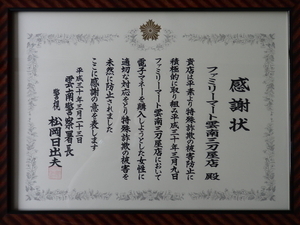 感謝状
ファミリーマート雲南三刀屋店 殿
貴店は平素より特殊詐欺の被害防止に
積極的に取り組み平成三十年三月九日
ファミリーマート雲南三刀屋店において
電子マネーを購入しようとした女性に
適切な対応をとり特殊詐欺の被害を
未然に防止されました
ここに感謝の意を表します
平成三十年三月二十三日
雲南警察署長
警視 松岡日出夫